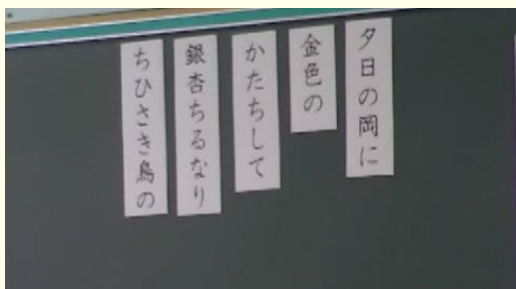 夕日の岡に
金色の
かたちして
銀杏ちるなり
ちひさき鳥の